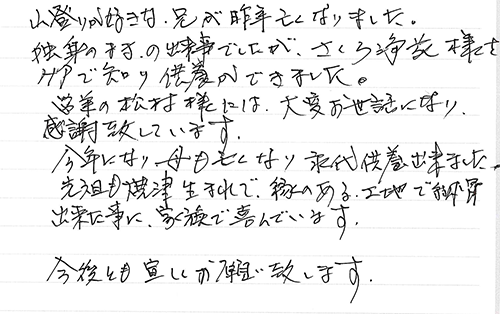 山登りが好きな、兄が昨年亡くなりました。
独身のまま、の出来事でしたが、さくら浄苑様を
で知り供養ができました。
営業の松村様には、大変お世話になり、
感謝致しています。
今年になり母も亡くなり永代供養出来ました
先祖も焼津生まれで、縁のある、土地で納骨
出来た事に、家族で喜んでいます。
今後とも宜しくお願い致します。